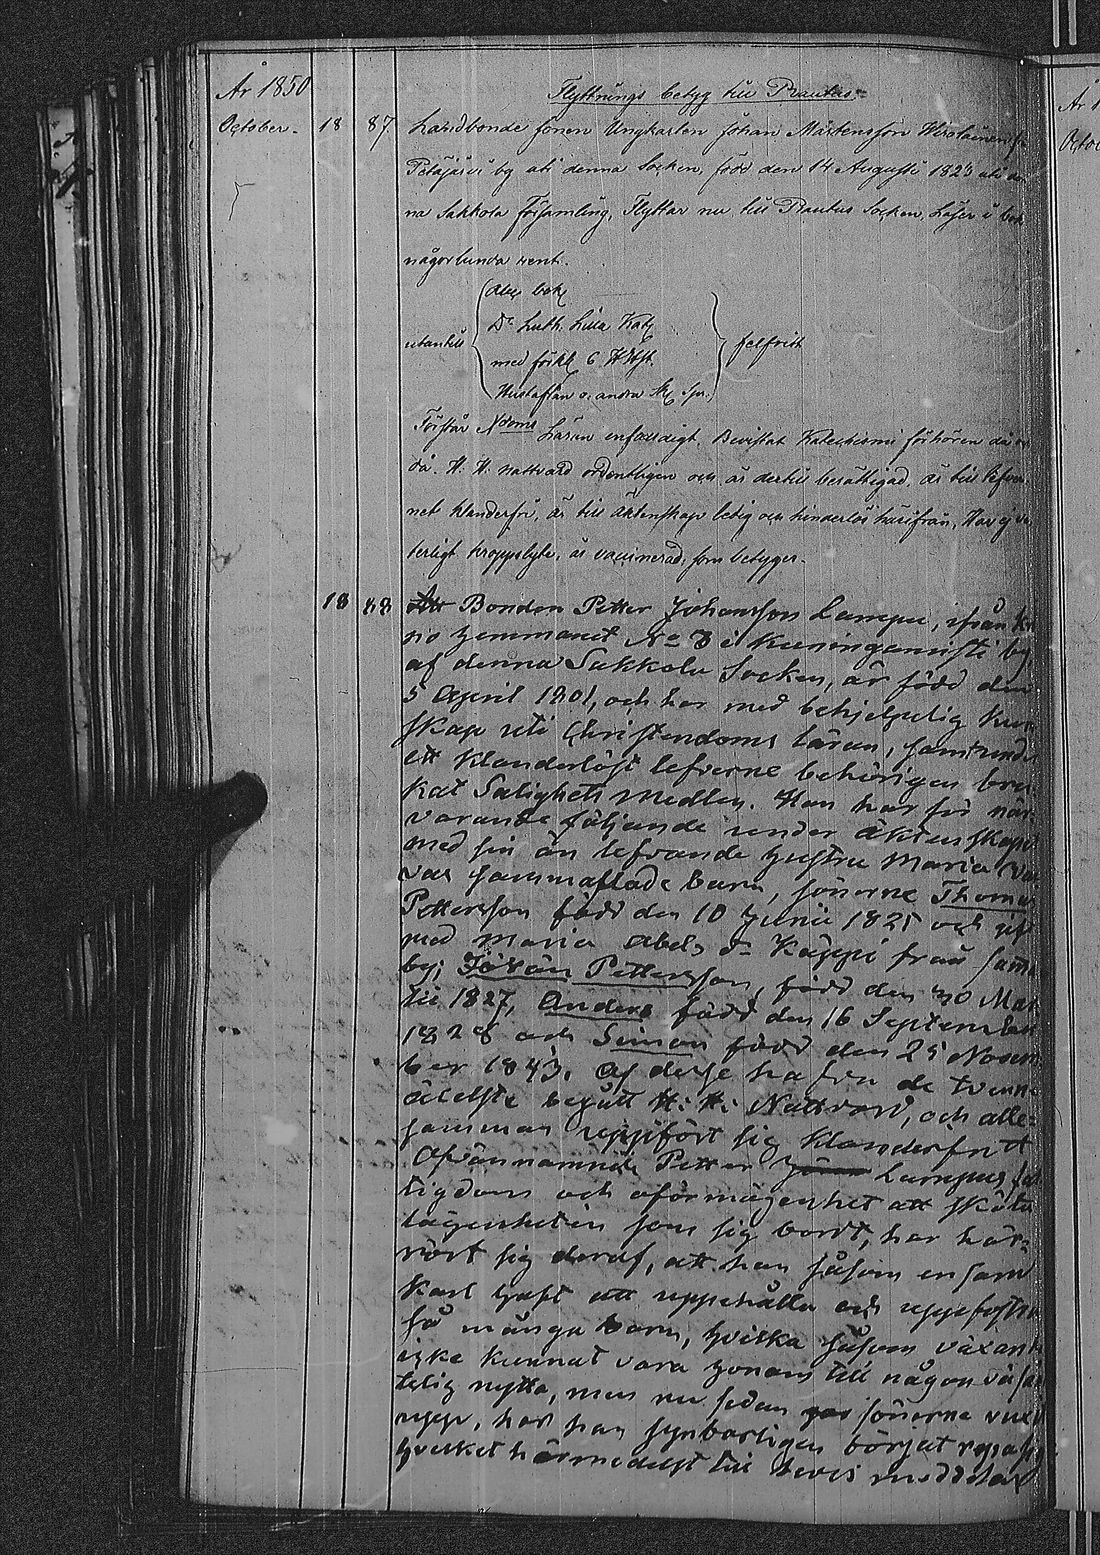 År 1850
Flyttnings betyg till Rautus.
October. 18 87 Landbonde sonen Ungkarlen Johan Mårtensson
Petäjärvi by uti denna Socken, född den 14 Augusti 1823 uti
na Sakkola församling, Flyttar nu till Rautus Socken, Läser i bok
någorlunda rent.
Abc bok
Dr Luth. Lilla Kat.
utantill
med förkl. 6 H. Hft.
felfritt
Hustaflan o. andra Skr. Spr.
Förstår Xdoms Läran enfaldigt, Bevistat Katechismi förhören
då H. H. nattvard ordentligen och är dertill berättigad, är till lefver-
net klanderfri, är till äktenskap ledig och hinderlös härifrån, Har ej
terligt kroppslyte, är vaccinerad; som betygas.
18 88 Att Bonden Petter Johansson Lampu, ifrån
no hemmanet No 3 i Kuninganristi by
af denna Sakkola Socken, är född den
5 April 1801, och har med behjelpelig kun
skap uti Christendoms läran, samt under
ett klanderlöst lefverne behörigen bru
kat Salighets medlen. Han har för när
varande följande under äktenskapet
med sin än lefvande hustru Maria
dar sammaflade barn, sönerne Thomas
Pettersson född den 10 Junii 1825 och gift
med Maria Abels dr Käppi från samma
by; Johan Pettersson, född den 30 Mar
tii 1827, Anders född den 16 September
1828 och Simon född den 25 Novem
ber 1843. Af desse hafva de tvenne
äldste begått H: H: Nattvard, och alle-
samman uppfört sig klanderfritt
Ofvannämnde Petter Lampus fat
tigdom och oförmögenhet att sköta
lägenheten som sig bordt, har här-
rört sig deraf, att han såsom ensam
Karl haft att uppehålla och uppfostra
så många barn, hvilka såsom växande
icke kunnat vara honom till någon
telig nytta, men nu sedan sönerne vuxit
upp, har han synbarligen börjat
hvilket härmedelst till bevis meddelas